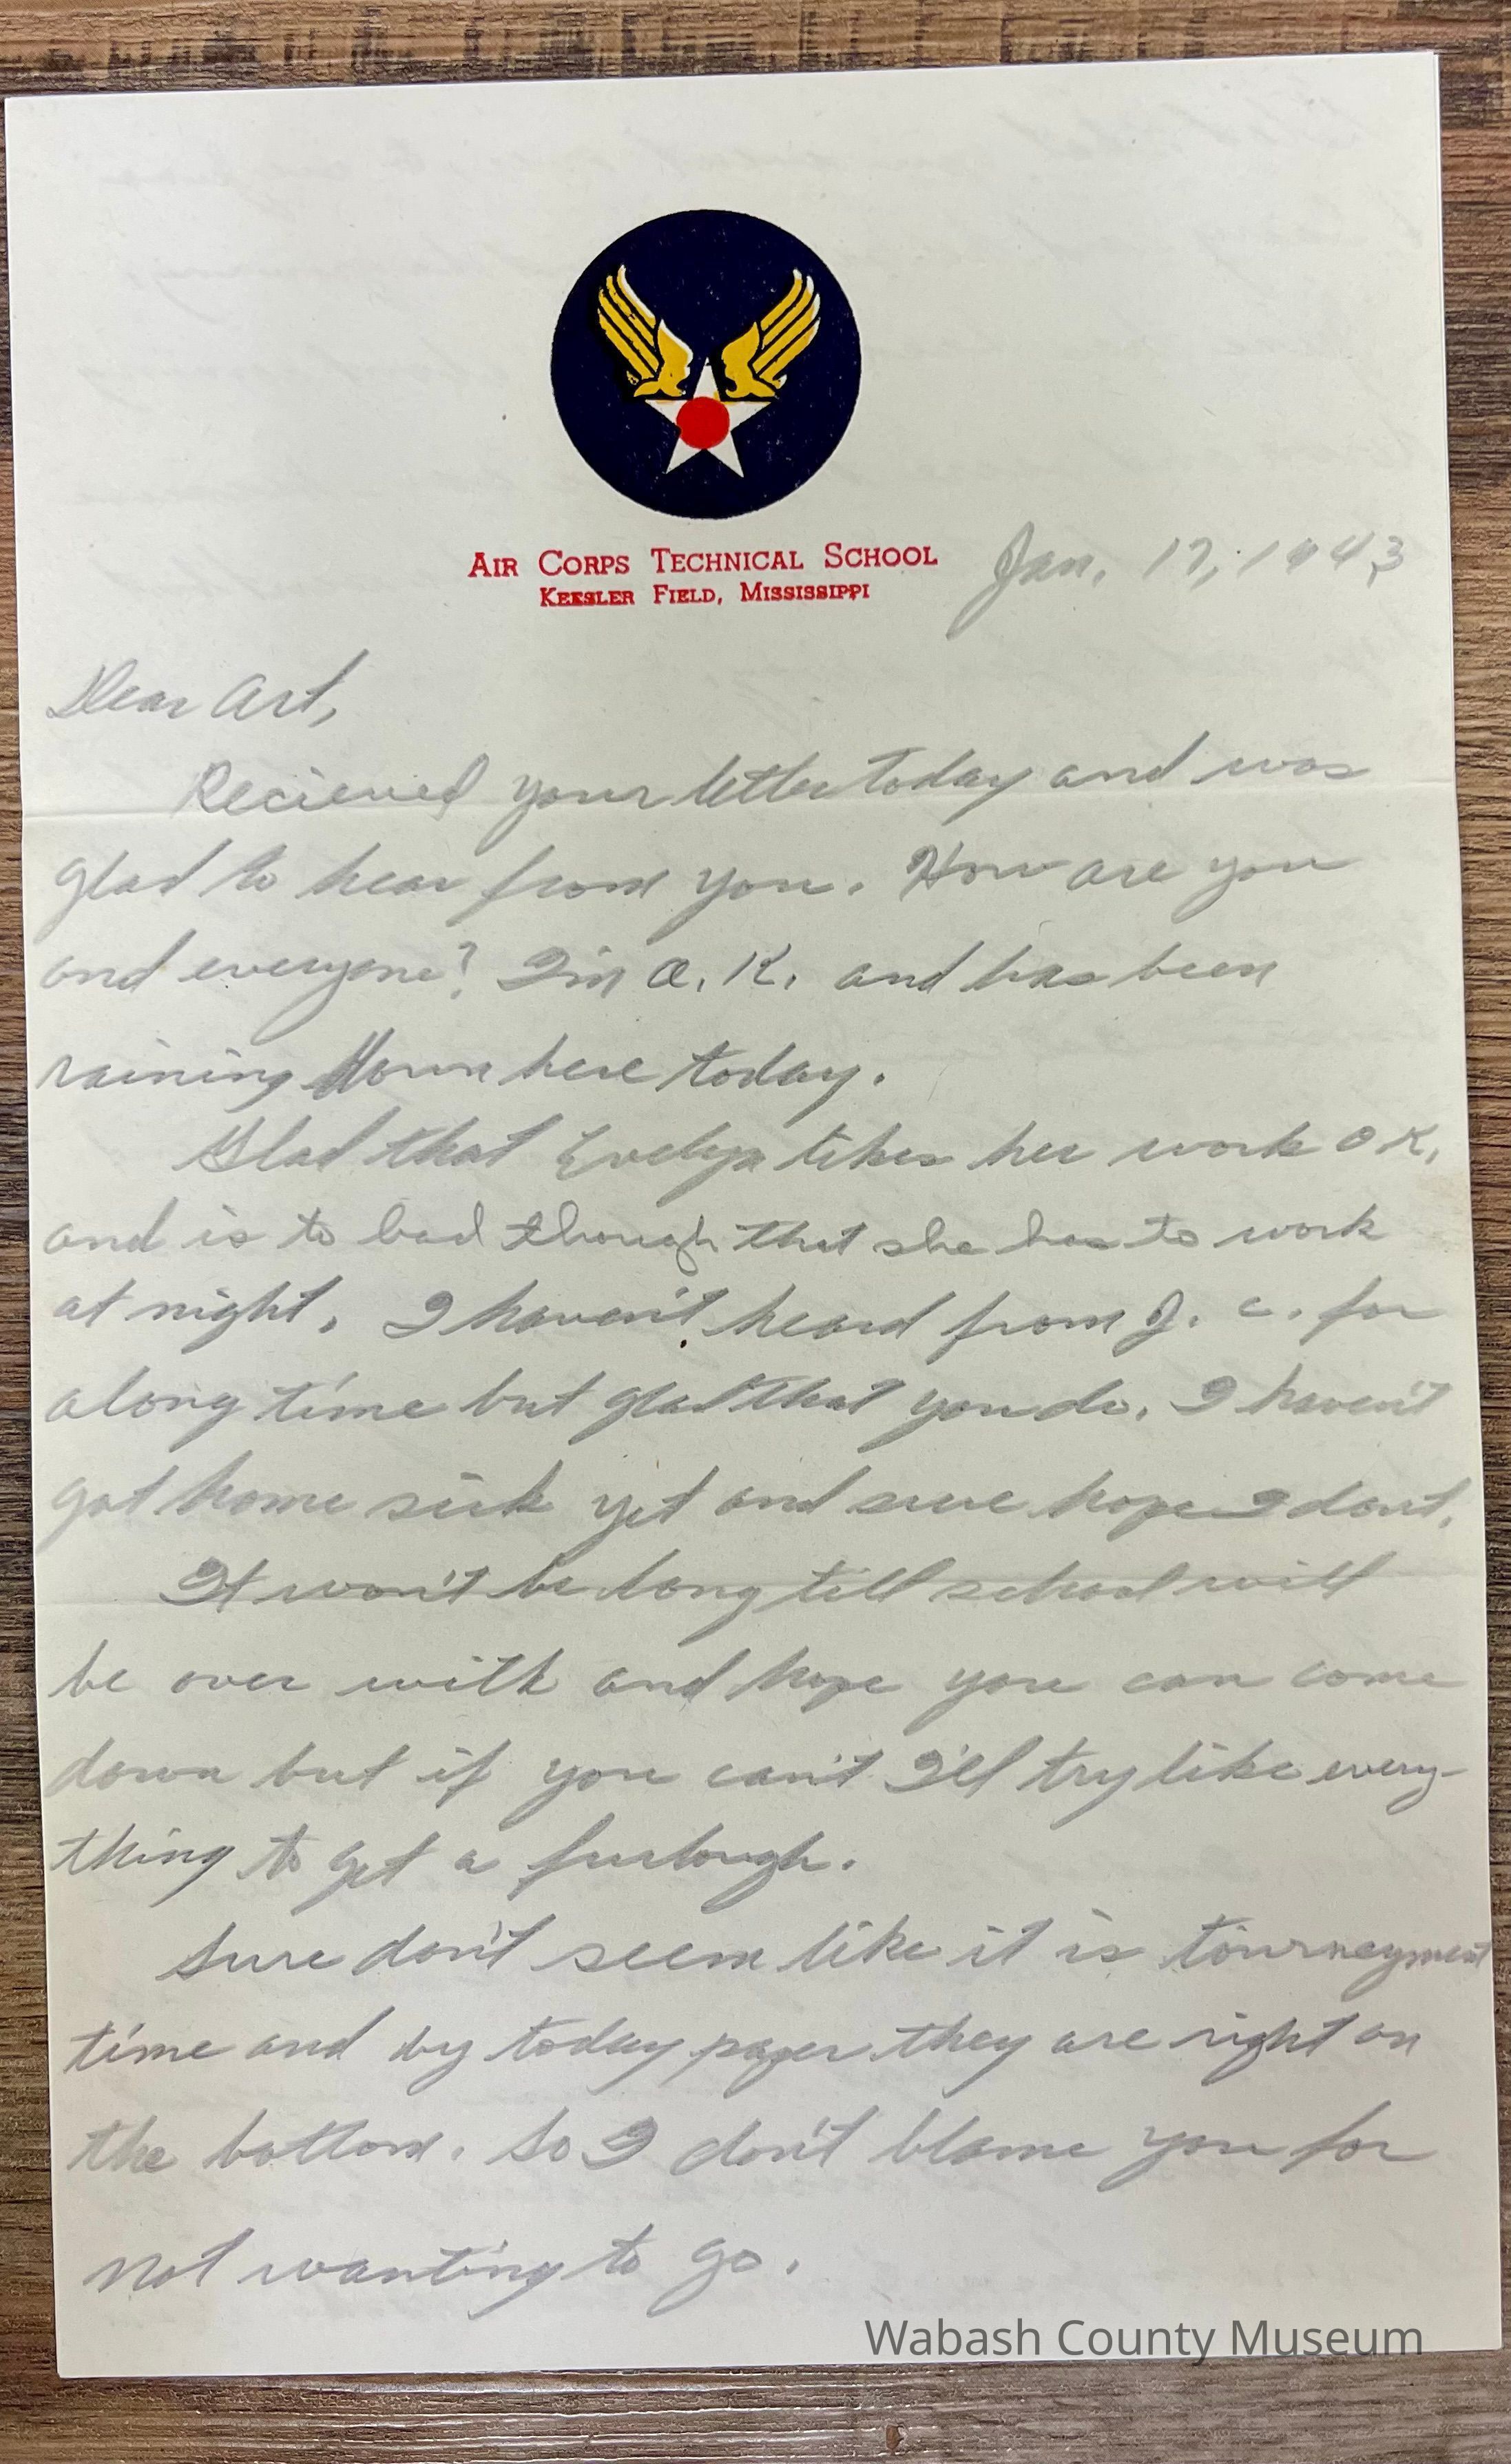 AIR CORPS TECHNICAL SCHOOL
KEESLER FIELD, MISSISSIPPI
Jan. 17, 1943
Dear Art,
Recieved your letter today and was
glad to hear from you. How are you
and everyone? I'm O.K. and has been
raining down here today.
Glad that Evelyn likes her work O K,
and is to bad though that she has to work
at night. I haven't heard from J. C. for
along time but glad that you do. I haven't
got home sick yet and sure hope I dont.
It won't be long till school will
be over with and hope you can come
down but if you can't I'll try like every-
thing to get a furlough.
Sure don't seem like it is tourneyment
time and by today paper they are right on
the bottom. So I don't blame you for
not wanting to go.
Wabash County Museum